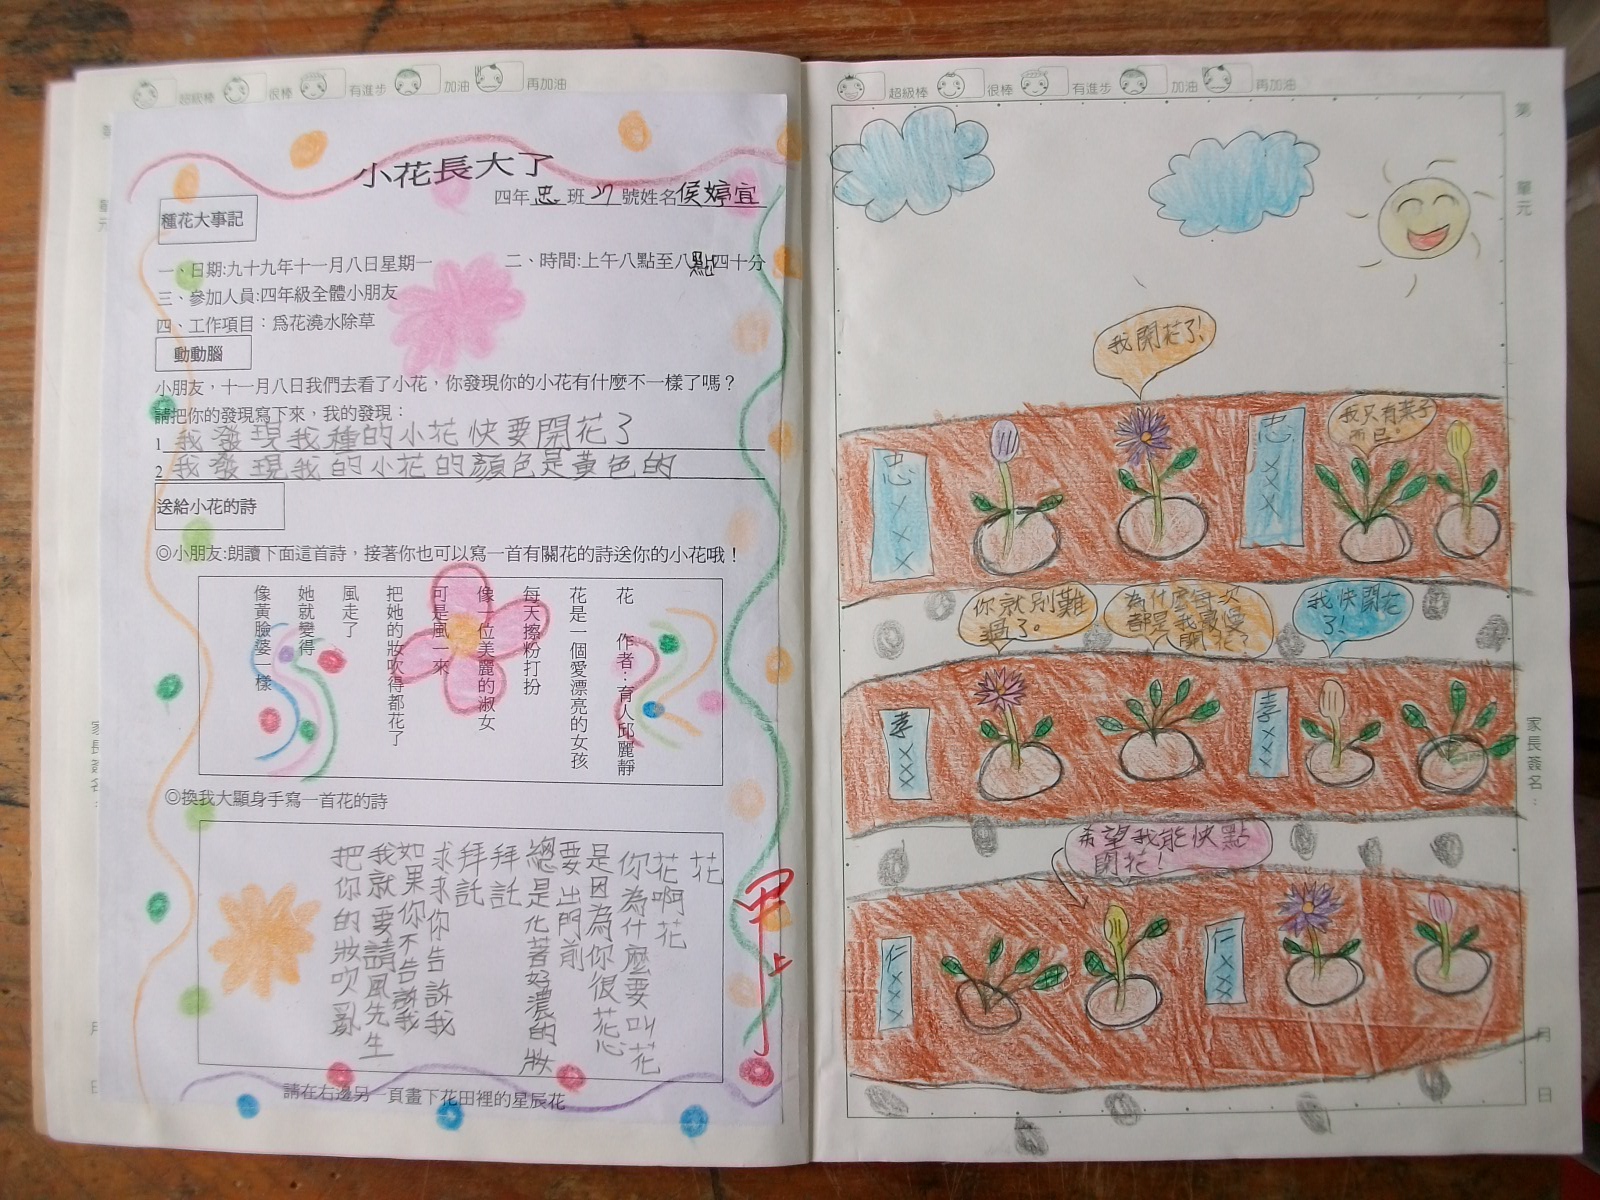 超級棒 很棒 有進步 加油 再加油
小花長大了
四年忠班27號姓名侯婷宜
種花大事記
一、日期:九十九年十一月八日星期一
二、時間:上午八點至八點四十分
三、參加人員:四年級全體小朋友
四、工作項目：爲花澆水除草
動動腦
小朋友，十一月八日我們去看了小花，你發現你的小花有什麼不一樣了嗎？
請把你的發現寫下來，我的發現：
1 我發現我種的小花快要開花了
2 我發現我的小花的顏色是黃色的
送給小花的詩
◎小朋友:朗讀下面這首詩，接著你也可以寫一首有關花的詩送你的小花哦！
花 作者：育人邱麗靜
花是一個愛漂亮的女孩
每天擦粉打扮
像一位美麗的淑女
可是風一來
把她的妝吹得都花了
風走了
她就變得
像黃臉婆一樣
◎換我大顯身手寫一首花的詩
花
花啊花
你為什麼要叫花
是因為你很花心
要出門前
總是化著好濃的妝
拜託
拜託
求求你告訴我
如果你不告訴我
我就要請風先生
把你的妝吹亂
甲上
請在右邊另一頁畫下花田裡的星辰花
家長簽名：
月
日
超級棒 很棒 有進步 加油 再加油
第
單元
我開花了!
忠×××
忠×××
我只有葉子
而已。
你就別難
過了。
為什麼每次
都是我最慢
開花?
我快開花
了!
孝×××
孝×××
希望我能快點
開花!
仁×××
仁×××
家長簽名：
月
日